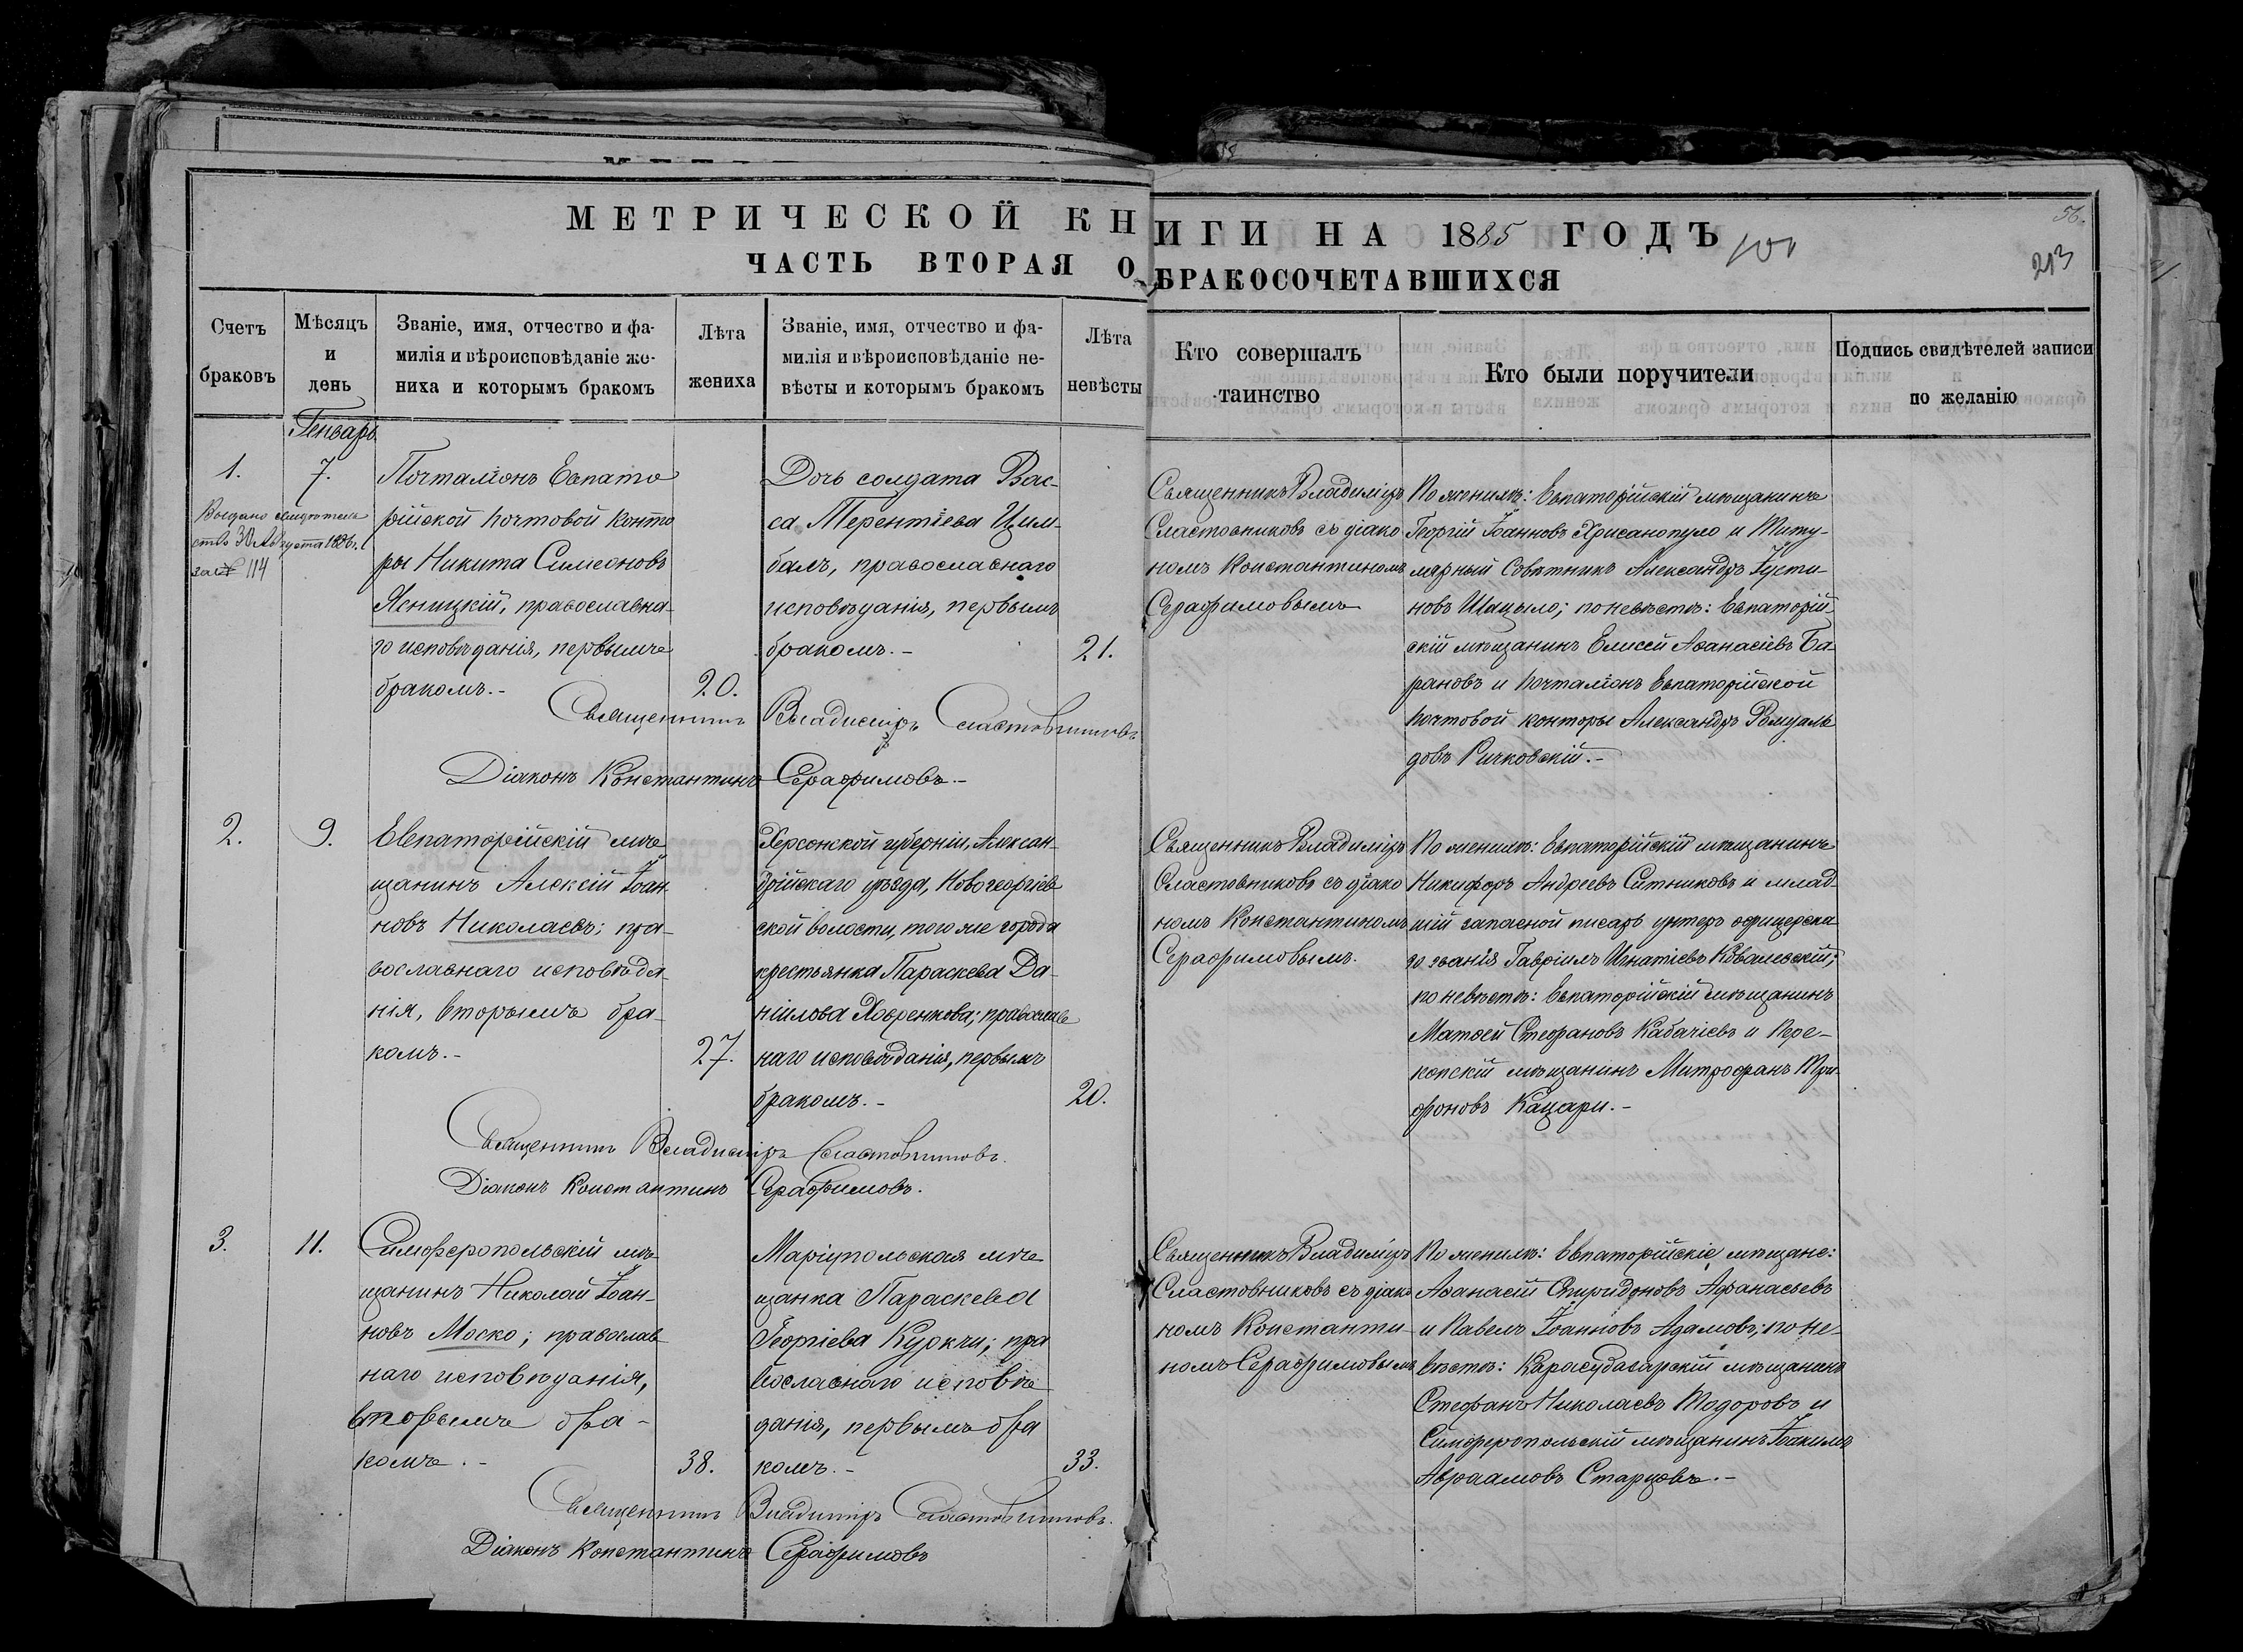 МЕТРИЧЕСКОЙ КНИГИ НА 1885 ГОДЪ
56.
213
ЧАСТЬ ВТОРАЯ О БРАКОСОЧЕТАВШИХСЯ
Счетъ
браковъ
Мѣсяцъ
и
день
Званіе, имя, отчество и фа-
милія и вѣроисповѣданіе же-
ниха и которымъ бракомъ
Лѣта
жениха
Званіе, имя, отчество и фа-
милія и вѣроисповѣданіе не-
вѣсты и которымъ бракомъ
Лѣта
невѣсты
Кто совершалъ
таинство
Кто были поручители
Подпись свидѣтелей записи
по желанію
Генварь
1.
Выдано свидѣтель
ство 30 Августа 1886 г.
за № 114
7.
Почталіонъ Евпато
рійской почтовой конто
ры Никита Симеоновъ
Ясницкій, православна-
го исповѣданія, первымъ
бракомъ.-
20.
Дочь солдата Вас-
са Терентіева Цим-
балъ, православнаго
исповѣданія, первымъ
бракомъ.-
21.
Священникъ Владиміръ
Сластовниковъ съ діако
номъ Константиномъ
Серафимовымъ
По женихѣ: Евпаторійскій мѣщанинъ
Георгій Іоанновъ Хрисанопуло и Титу-
лярный Совѣтникъ Александръ Іусти-
новъ Шацыло; по невѣстѣ: Евпаторій-
скій мѣщанинъ Елисей Аѳанасіевъ Ба
рановъ и почталіонъ Евпаторійской
почтовой конторы Александръ Ромуаль
довъ Ричковскій.-
Священникъ Владиміръ Сластовниковъ
Діаконъ Константинъ Серафимовъ.-
2.
9.
Евпаторійскій мѣ
щанинъ Алексій Іоан
новъ Николаевъ; пра-
вославнаго исповѣда-
нія, вторымъ бра-
комъ.-
27.
Херсонской губерніи, Алексан-
дрійскаго уѣзда, Новогеоргіев
ской волости, того же города
крестьянка Параскева Да-
ніилова Хавренкова; православ
наго исповѣданія, первымъ
бракомъ.-
20.
Священникъ Владиміръ
Сластовниковъ съ діако
номъ Константиномъ
Серафимовымъ.
По женихѣ: Евпаторійскій мѣщанинъ
Никифоръ Андреевъ Ситниковъ и млад-
шій запасной писарь унтеръ офицерска
го званія Гавріилъ Игнатіевъ Ковалевскій;
по невѣстѣ: Евпаторійскій мѣщанинъ
Матѳей Стефановъ Кабачіевъ и Пере-
копскій мѣщанинъ Митрофанъ Три-
фоновъ Кацари.-
Священникъ Владиміръ Сластовниковъ.
Діаконъ Константинъ Серафимовъ.
3.
11.
Симферопольскій мѣ-
щанинъ Николай Іоан-
новъ Моско; православ
наго исповѣданія,
вторымъ бра-
комъ.-
38.
Маріупольская мѣ
щанка Параскева
Георгіева Куркчи; пра
вославнаго исповѣ
данія, первымъ бра
комъ.-
33.
Священникъ Владиміръ
Сластовниковъ съ діако
номъ Константи-
номъ Серафимовымъ
По женихѣ: Евпаторійскіе мѣщане:
Аѳанасій Спиридоновъ Аѳанасьевъ
и Павелъ Іоанновъ Адамовъ; по не-
вѣстѣ: Карасубазарскій мѣщанинъ
Стефанъ Николаевъ Тодоровъ и
Симферопольскій мѣщанинъ Іоакимъ
Авраамовъ Старцовъ.-
Священникъ Владиміръ Сластовниковъ.
Діаконъ Константинъ Серафимовъ